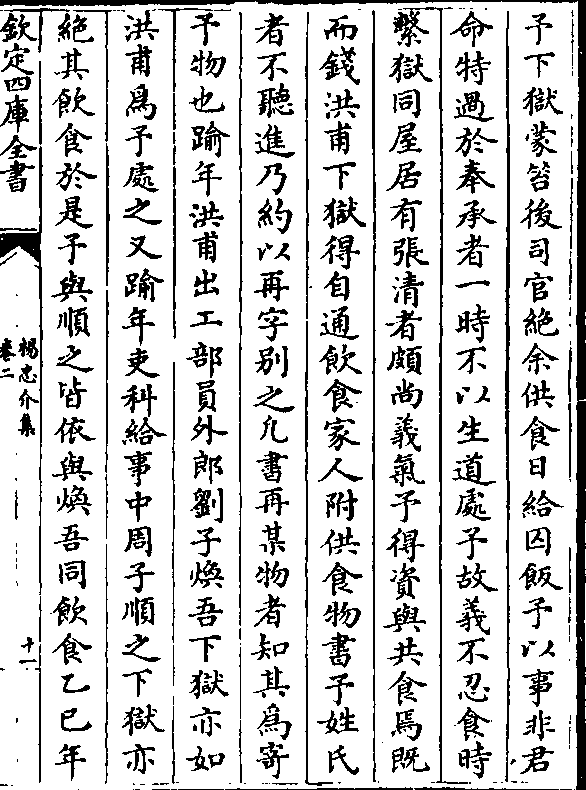 予下獄蒙笞後司官絶余供食日給囚飯予以事非君
命特過於奉承者一時不以生道處予故義不忍食時
繫獄同屋居有張清者頗尚義氣予得資與共食焉既
而錢洪甫下獄得自通飲食家人附供食物書予姓氏
者不聽進乃約以再字别之凡書再某物者知其為寄
予物也踰年洪甫出工部員外郎劉子煥吾下獄亦如
洪甫為予處之又踰年吏科給事中周子順之下獄亦
絶其飲食於是予與順之皆依與煥吾同飲食乙巳年
欽定四庫全書
楊忠介集
卷二
十一